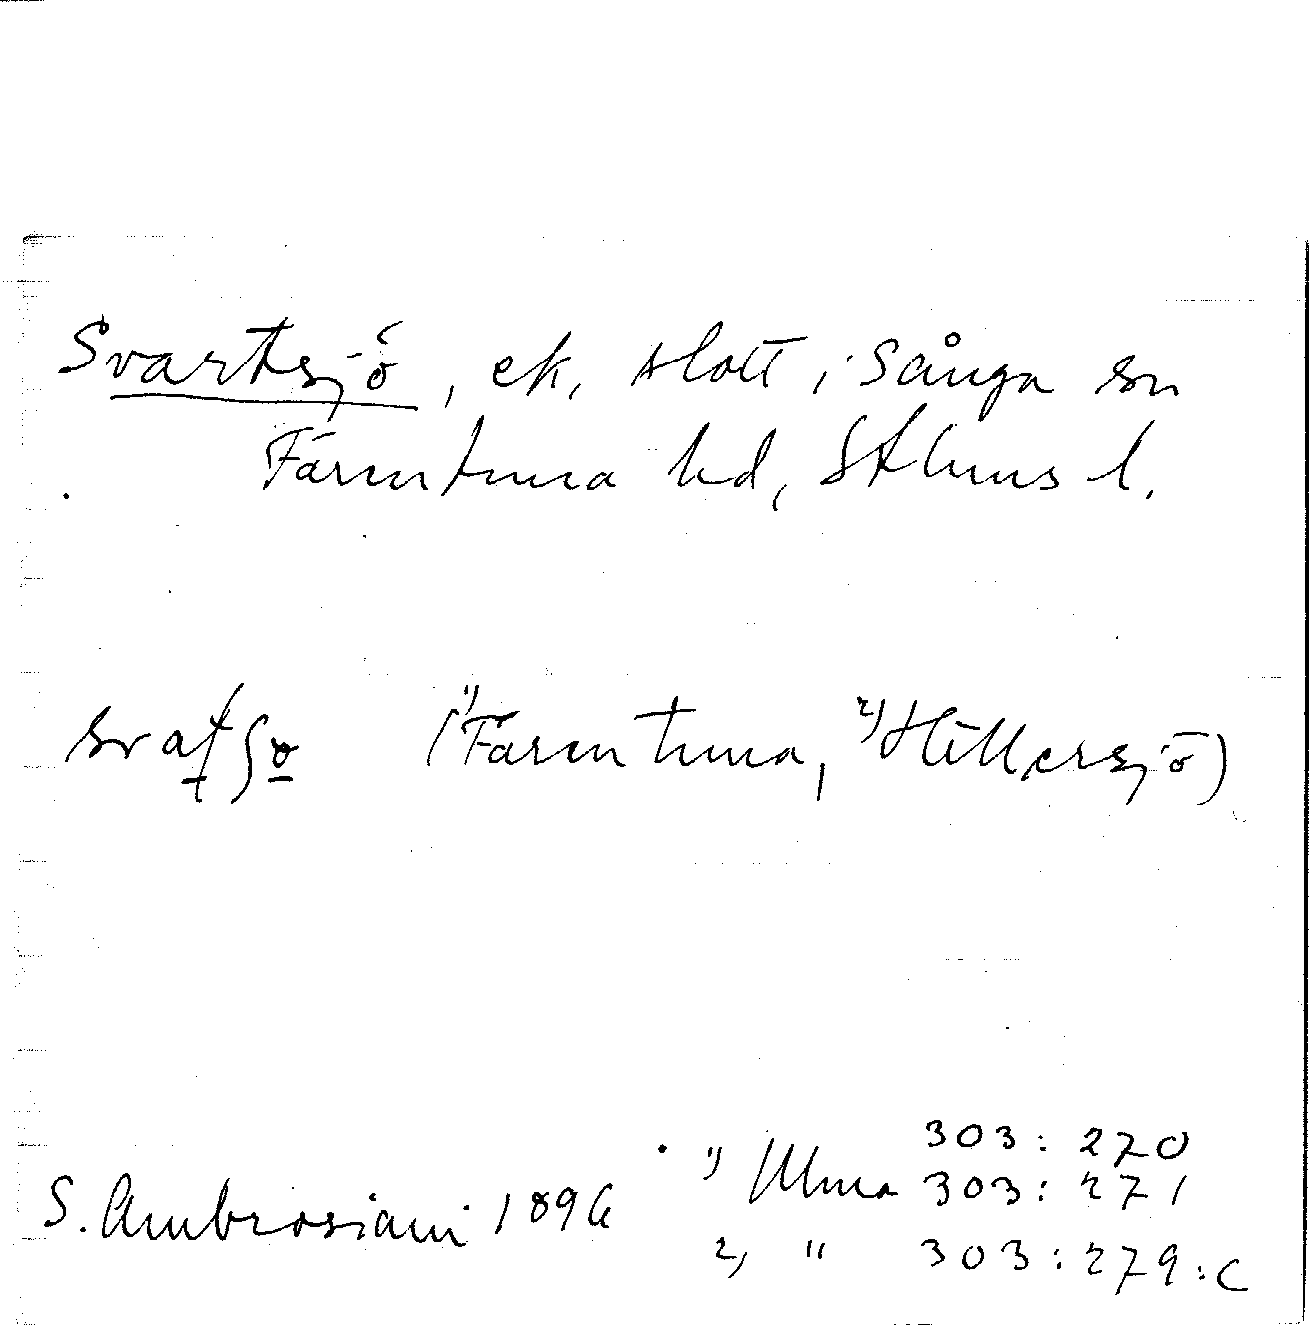 Svartsjö, ek. slott i Sånga sn
Färentuna hd, Sthlms l.
(1) Färentuna, 2) Hillersjö)
303:270
S. Ambrosiani 1896 1) Ulma 303:271
2) " 303:279:c